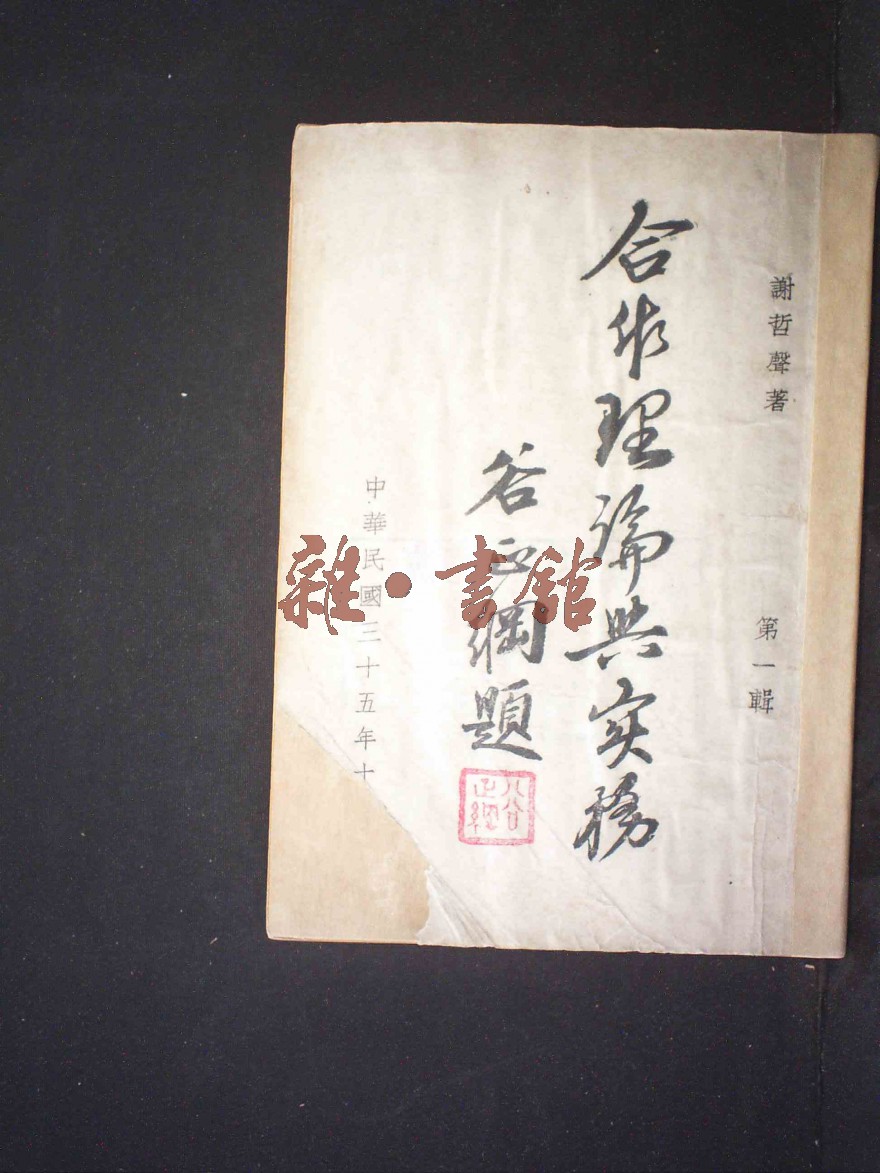 謝哲聲著
第一輯
合作理論與实務
谷正綱題
谷正綱
中華民國三十五年十
雜·書館